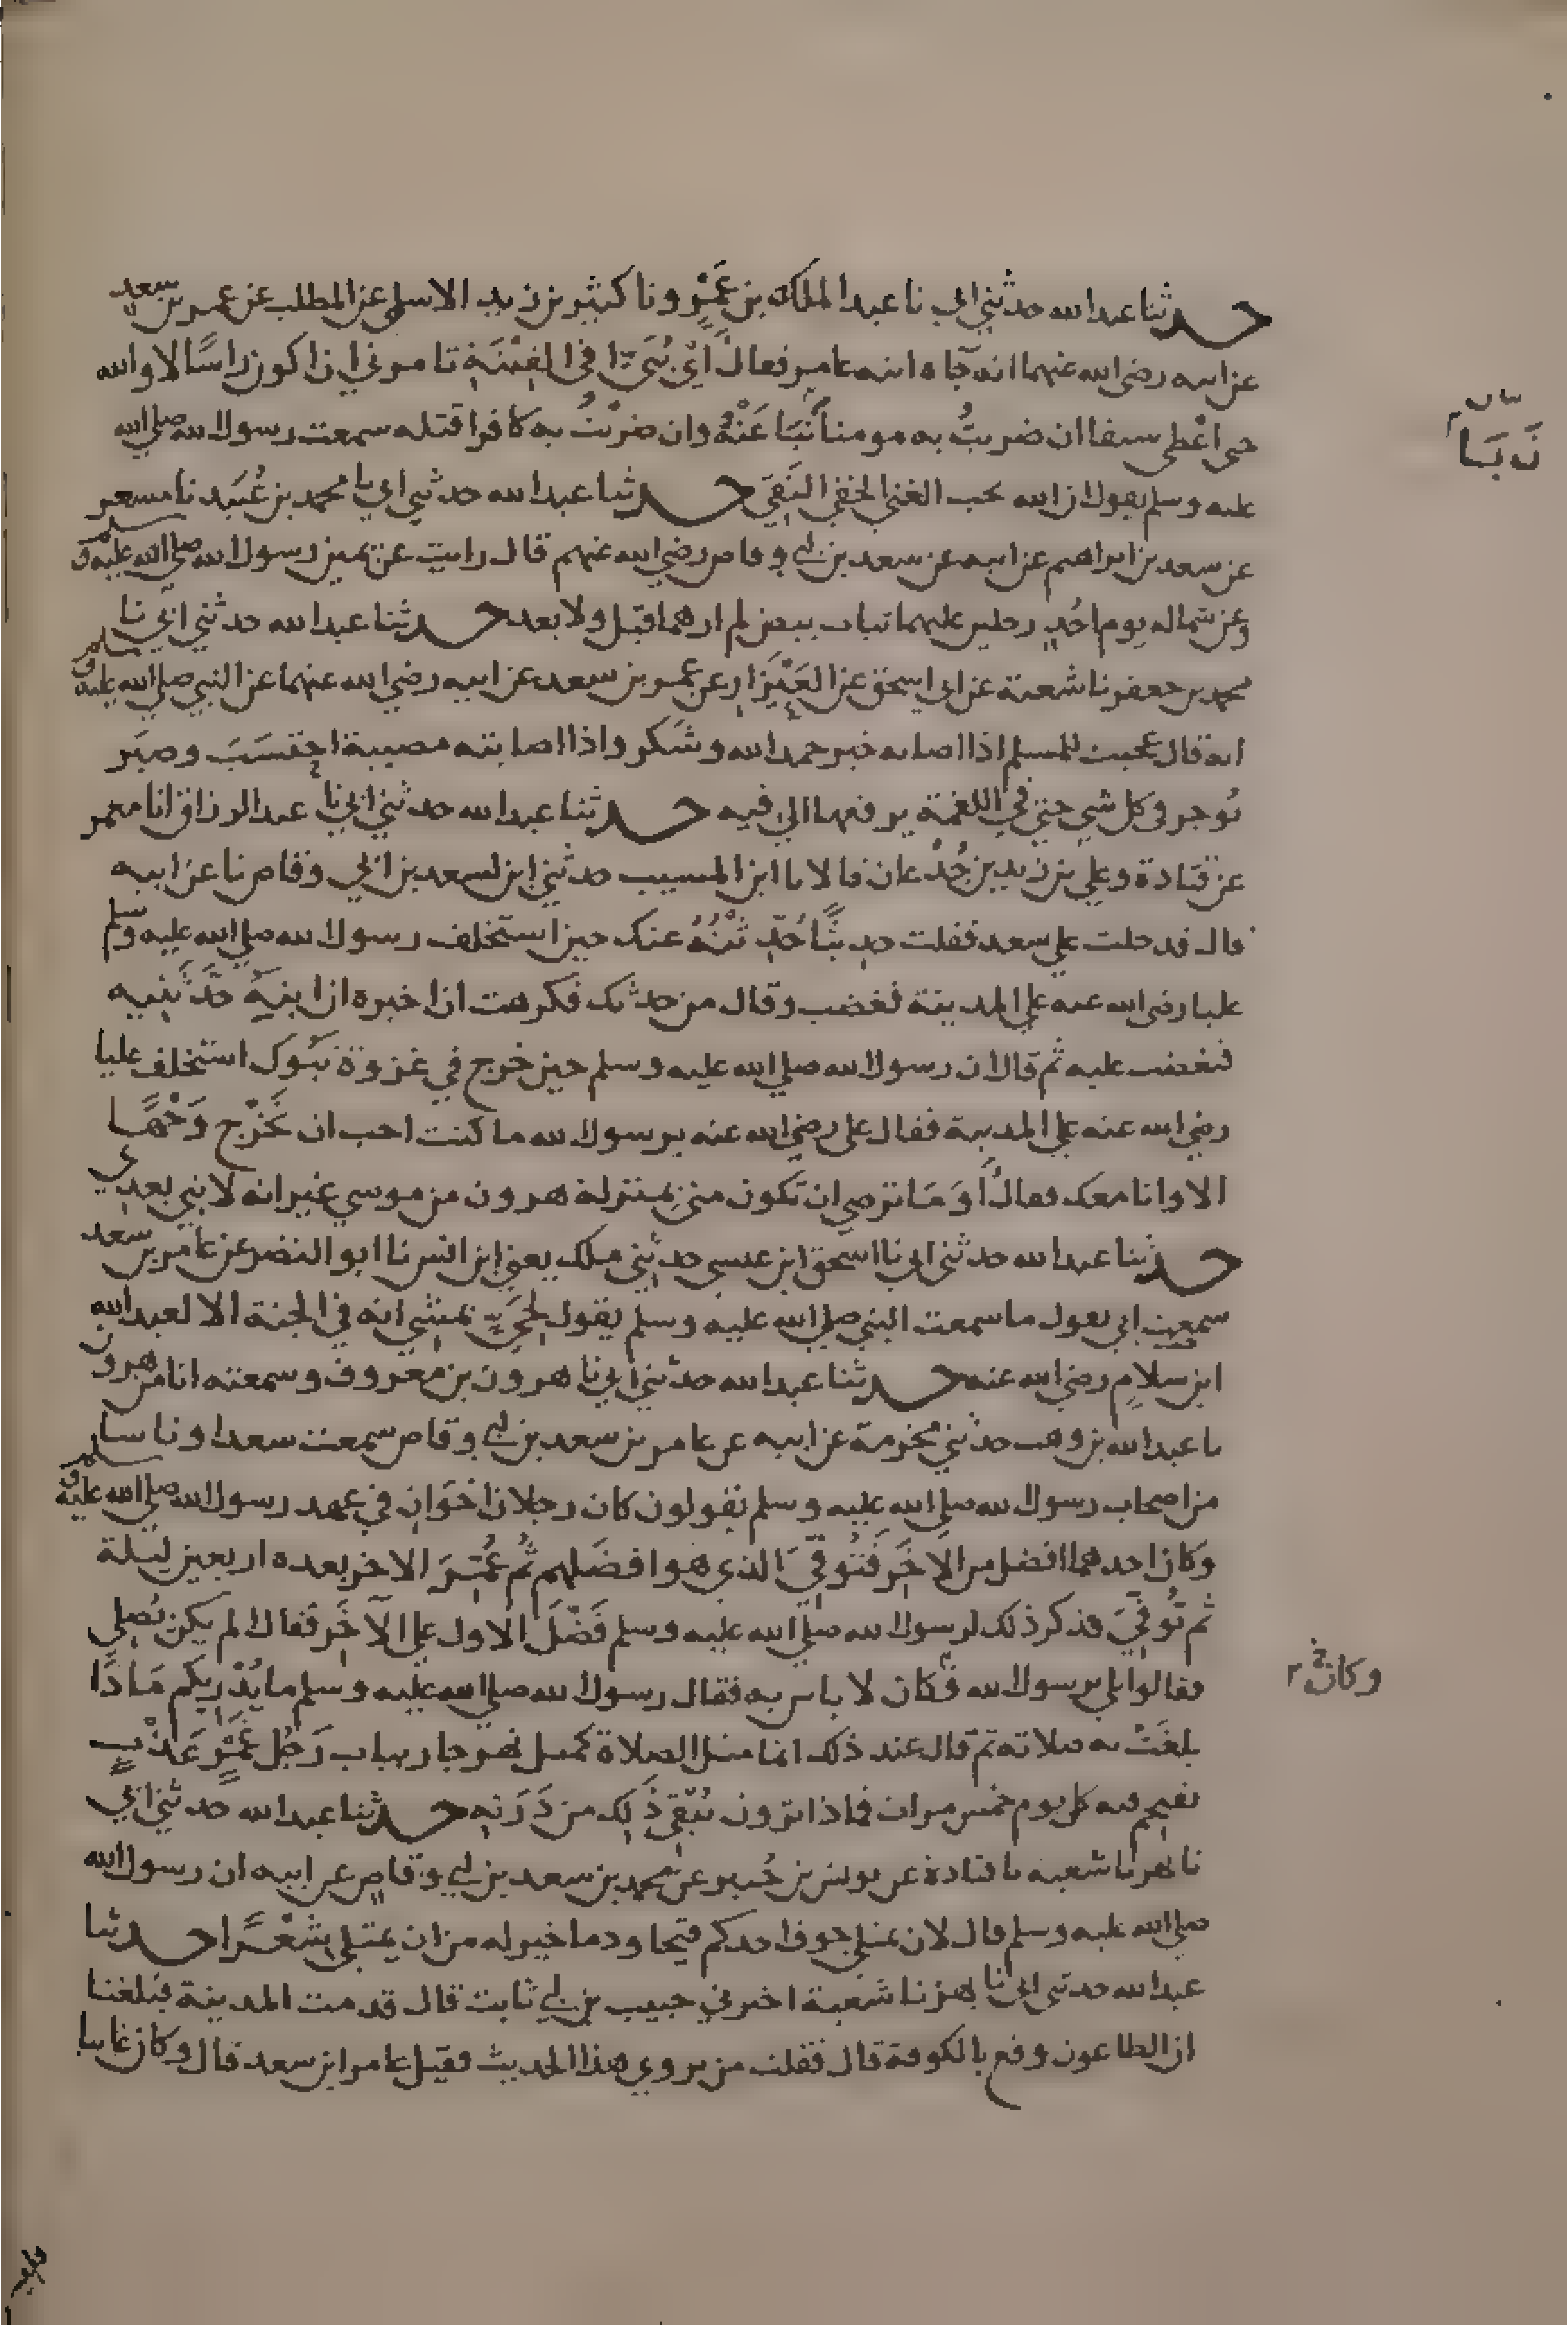 حدثنا عبد الله حدثني ابي نا عبد الملك بن عَمْرٍو نا كثير بن زيد الاسلمي عن المطلب عن عمر بن سعد
عن ابيه رضي الله عنهما انه جَاه ابنه عامر فقال اَيْ بُنَيَّ ا في الفِتْنَةِ تامرني ان اكون راسًا لا والله
حتى اعْطى سيفا ان ضربتُ به مومنا نَبَا عَنْهُ وان ضَرَبْتُ به كافرا قتله سمعت رسول الله صلى الله
عليه وسلم يقول ان الله يحب الغني الخفي التَقِيَّ حدثنا عبد الله حدثني ابي نا محمد بن عُبَيد نا مسعر
عن سعد بن ابراهيم عن ابيه عن سعد بن ابي وقاص رضي الله عنهم قال رايت عن يمين رسول الله صلى الله عليه وسلم
وعن شماله يوم احُدٍ رجلين عليهما ثياب بيض لم ارهما قبل ولا بعد حدثنا عبد الله حدثني ابي نا
محمد بن جعفر نا شعبة عن ابي اسحق عن العَيْزَارِ عن عمر بن سعد عن ابيه رضي الله عنهما عن النبي صلى الله عليه وسلم
انه قال عجبت للمسلم اذا اصابه خير حمد الله وشَكر واذا اصابته مصيبة احتسَبَ وصبَر
يُوجر في كل شي حتى في اللقمة يرفعها الي فيه حدثنا عبد الله حدثني ابي نا عبد الرزاق انا معمر
عن قتادة وعلي بن زيد بن جُدْعان قالا نا ابن المسيب حدثني ابن لسعد بن ابي وقاص نا عن ابيه
قال فدخلت علي سعد فقلت حديثًا حُدِّثْتُهُ عنك حين استخلف رسول الله صلى الله عليه وسلم
عليا رضي الله عنه علي المدينة فغضب وقال من حدثك فكرهت ان اخبره ان ابنهُ حَدَّثَنِيه
فيغضب عليه ثم قال ان رسول الله صلي الله عليه وسلم حين خرج في غزوة تَبُوك استخلف عليا
رضي الله عنه علي المدينة فقال علي رضي الله عنه يرسول الله ما كنت احب ان تَخْرُج وَجْهًا
الا وانا معك فقال أَوَمَا ترضي ان تكون مني بمنزلة هرون من موسي غير انه لا نبي بعدي
حدثنا عبد الله حدثني ابي نا اسحق ابن عيسى حدثني ملك يعني ابن انس نا ابو النضر عن عامر بن سعد
سمعت ابي يقول ما سمعت النبي صلي الله عليه وسلم يقول لِحَيٍّ يمشي انه في الجنة الا لعبد الله
ابن سلامٍ رضي الله عنه حدثنا عبد الله حدثني ابي نا هرون بن معروف وسمعته انا من هرون
نا عبد الله بن وهب حدثني مخرمة عن ابيه عن عامر بن سعد بن ابي وقاص سمعت سعدا وناسا
من اصحاب رسول الله صلي الله عليه وسلم يقولون كان رجلان اخَوَان في عهد رسول الله صلي الله عليه وسلم
وكان احدهما افضل من الاَخَر فَتُوفِّيَ الذي هو افضَلهم ثُم عُمِّرَ الاخر بعده اربعين ليلة
ثم تُوفِّيَ فذكر ذلك لرسول الله صلي الله عليه وسلم فَضْلَ الاول علي الآخَر فقال الم يكن يُصلي
فقالوا بلي يرسول الله فكان لا باس به فقال رسول الله صلي الله عليه وسلم ما يُدْرِيكم مَاذا
بلغَتْ به صلاته ثم قال عند ذلك انما مثل الصلاة كمثل نهر جار بباب رَجُل غَمْرٍ عَذْبٍ
يقتحم فيه كل يوم خمس مرات فماذا ترون يُبْقِي ذَلِك من دَرَنِه حدثنا عبد الله حدثني ابي
نا بهز نا شعبه نا قتادة عن يونس بن جُبير عن محمد بن سعد بن ابي وقاص عن ابيه ان رسول الله
صلي الله عليه وسلم قال لان يمتلي جوف احدكم قيحا ودما خير له من ان يمتلي شِعْرًا حدثنا
عبد الله حدثني ابي نا بهز نا شعبة اخبرني حبيب بن ابي ثابت قال قدمت المدينة فبلغنا
ان الطاعون وقع بالكوفة قال فقلت من يروي هذا الحديث فقيل عامر ابن سعد قال وكان غايبا
نَبَا
وكان